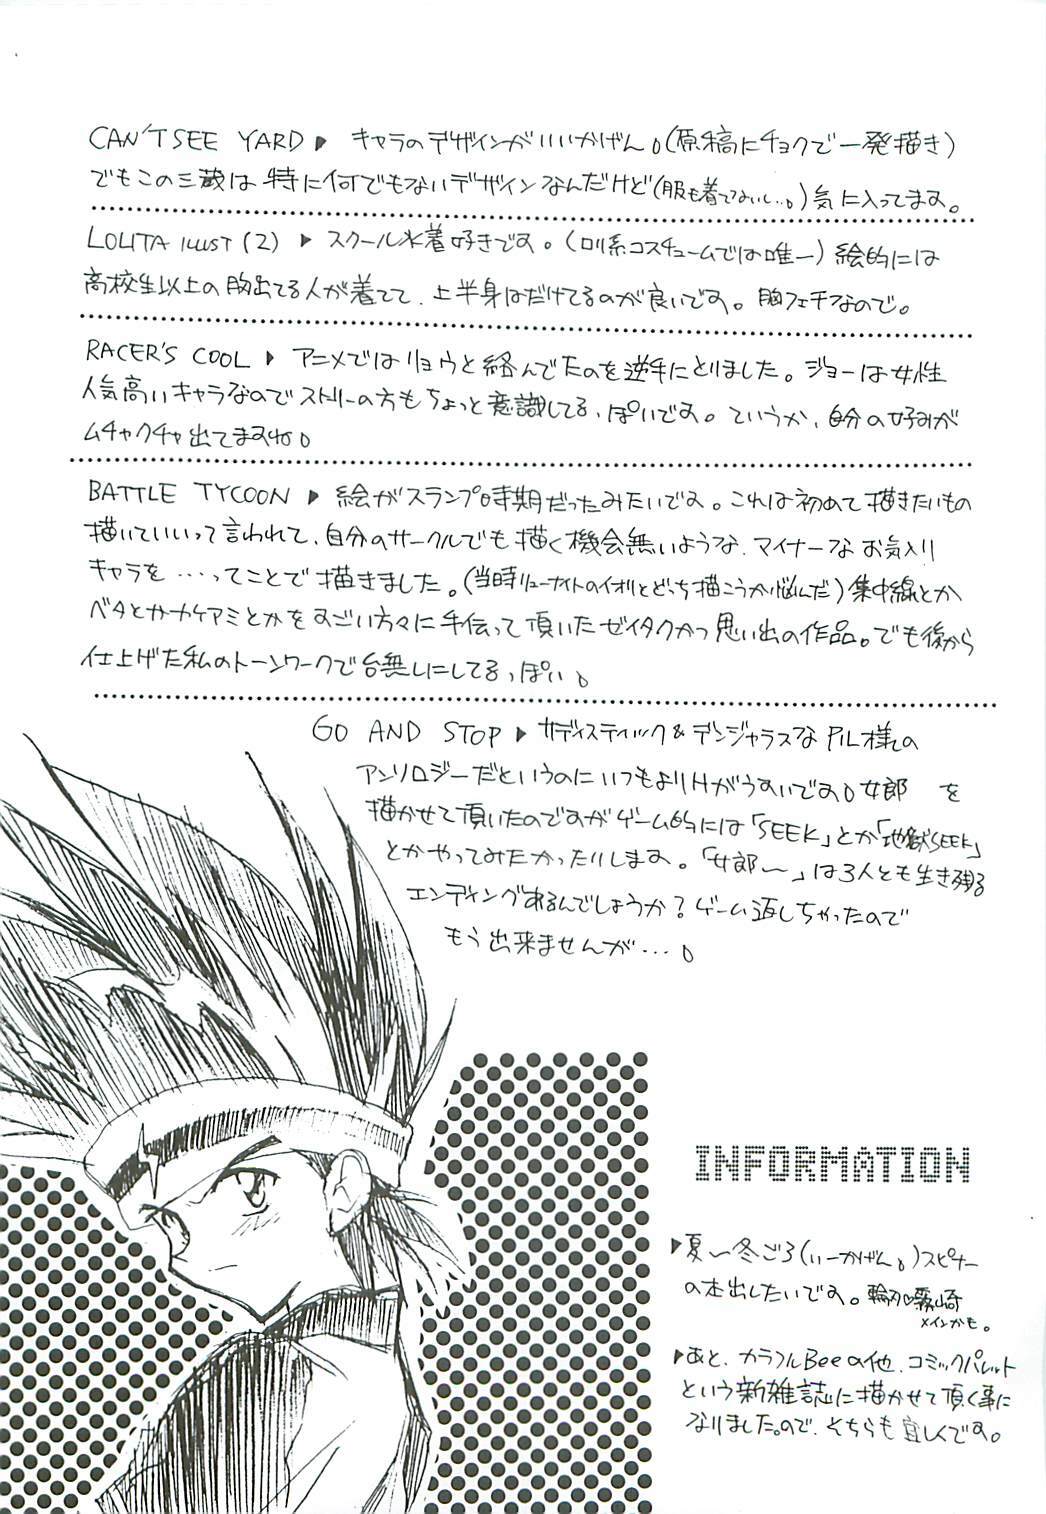 CAN'T SEE YARD ▶ キャラのデザインがいいかげん。(原稿にチョクで一発描き)
でもこの三蔵は特に何でもないデザインなんだけど(服も着てないし…。)気に入ってます。
LOLITA ILLUST (2) ▶ スクール水着好きです。(ロリ系コスチュームでは唯一)絵的には
高校生以上の胸出てる人が着てて、上半身はだけてるのが良いです。胸フェチなので。
RACER'S COOL ▶ アニメではリョウと絡んでたのを逆手にとりました。ジョーは女性
人気高いキャラなのでストーリーの方もちょっと意識してる、ぽいです。ていうか、自分の好みが
ムチャクチャ出てますね。
BATTLE TYCOON ▶ 絵がスランプ時期だったみたいです。これは初めて描きたいもの
描いていいって言われて、自分のサークルでも描く機会無いような、マイナーなお気入り
キャラを…ってことで描きました。(当時リューナイトのイオリとどっち描こうか悩んだ)集中線とか
ベタとかカケアミとかをすごい方々に手伝って頂いたゼイタクかつ思い出の作品。でも後から
仕上げた私のトーンワークで台無しにしてるっぽい。
GO AND STOP ▶ サディスティック&デンジャラスなPIL様の
アンソロジーだというのにいつもよりHがうすいです。女郎 を
描かせて頂いたのですがゲーム的には「SEEK」とか「地獄SEEK」
とかやってみたかったりします。「女郎〜」は3人とも生き残る
エンディングあるんでしょうか?ゲーム返しちゃったので
もう出来ませんが…。
INFORMATION
▶夏〜冬ごろ(いーかげん。)スピナー
の本出したいです。輪刃♡霧崎
メインかも。
▶あと、カラフルBeeの他、コミックパレット
という新雑誌に描かせて頂く事に
なりました。ので、そちらも宜しくです。